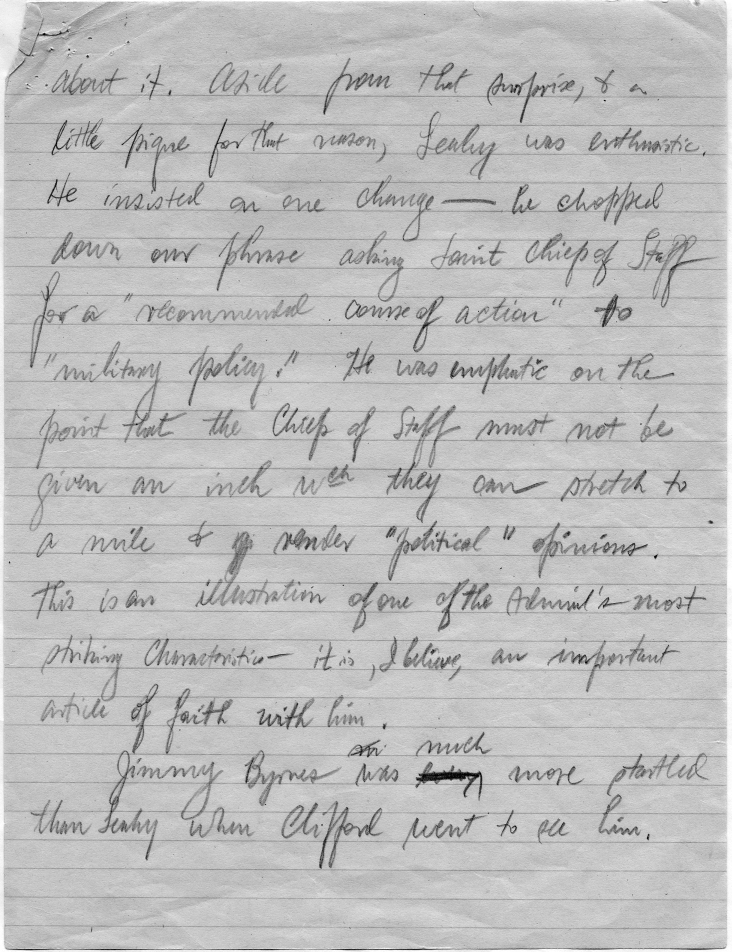 about it. Aside from that surprise, & a
little pique for that reason, Leahy was enthusiastic.
He insisted on one change — he chopped
down our phrase asking Joint Chiefs of Staff
for a "recommended course of action" to
"military policy." He was emphatic on the
point that the Chiefs of Staff must not be
given an inch wch they can stretch to
a mile & render "political" opinions.
This is an illustration of one of the Admiral's most
striking characteristics — it is, I believe, an important
article of faith with him.
much
Jimmy Byrnes was more startled
than Leahy when Clifford went to see him.